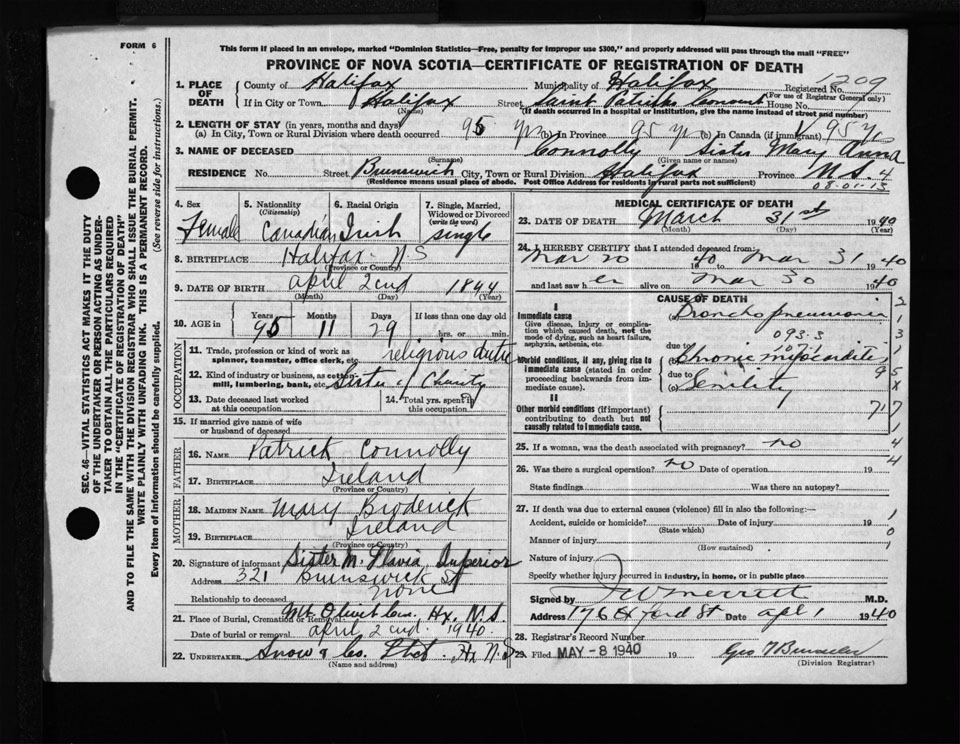 FORM 6
This form if placed in an envelope, marked "Dominion Statistics—Free, penalty for improper use $300," and properly addressed will pass through the mail "FREE"
PROVINCE OF NOVA SCOTIA—CERTIFICATE OF REGISTRATION OF DEATH
SEC. 46—VITAL STATISTICS ACT MAKES IT THE DUTY
OF THE UNDERTAKER OR PERSON ACTING AS UNDER-
TAKER TO OBTAIN ALL THE PARTICULARS REQUIRED
IN THE "CERTIFICATE OF REGISTRATION OF DEATH"
AND TO FILE THE SAME WITH THE DIVISION REGISTRAR WHO SHALL ISSUE THE BURIAL PERMIT.
WRITE PLAINLY WITH UNFADING INK. THIS IS A PERMANENT RECORD.
Every item of Information should be carefully supplied. (See reverse side for instructions.)
1. PLACE OF DEATH County of Halifax Municipality of Halifax Registered No. 1209
(For use of Registrar General only)
If in City or Town Halifax Street Saint Patricks Convent House No.
(Name) (If death occurred in a hospital or institution, give the name instead of street and number)
2. LENGTH OF STAY (in years, months and days)
(a) In City, Town or Rural Division where death occurred 95 yrs (b) In Province 95 yrs (b) In Canada (if immigrant) 95 yrs
3. NAME OF DECEASED Connolly Sister Mary Anna
(Surname) (Given name or names)
RESIDENCE No. Street Brunswick City, Town or Rural Division Halifax Province N.S. 4
(Residence means usual place of abode. Post Office Address for residents in rural parts not sufficient)
08-01-13
4. Sex Female
5. Nationality (Citizenship) Canadian
6. Racial Origin Irish
7. Single, Married, Widowed or Divorced (write the word) Single
8. BIRTHPLACE Halifax N.S
(Province or Country)
9. DATE OF BIRTH April 2nd 1844
(Month) (Day) (Year)
10. AGE in Years 95 Months 11 Days 29 If less than one day
hrs. or min.
OCCUPATION
11. Trade, profession or kind of work as spinner, teamster, office clerk, etc. religious duties
12. Kind of industry or business, as cotton-mill, lumbering, bank, etc. Sister of Charity
13. Date deceased last worked at this occupation
14. Total yrs. spent in this occupation
15. If married give name of wife or husband of deceased
FATHER
16. NAME Patrick Connolly
17. BIRTHPLACE Ireland
(Province or Country)
MOTHER
18. MAIDEN NAME Mary Broderick
19. BIRTHPLACE Ireland
(Province or Country)
20. Signature of informant Sister M. Flavia, Superior
Address 321 Brunswick St
Relationship to deceased none
21. Place of Burial, Cremation or Removal Mt. Olivet Cem. Hx. N.S.
Date of burial or removal April 2nd. 1940
22. UNDERTAKER Snow & Co. Hx N.S
(Name and address)
MEDICAL CERTIFICATE OF DEATH
23. DATE OF DEATH March 31st 1940
(Month) (Day) (Year)
24. I HEREBY CERTIFY that I attended deceased from:
Mar 20 1940 to Mar 31 1940
and last saw her alive on Mar 30 1940
CAUSE OF DEATH
I
Immediate cause
Give disease, injury or complication which caused death, not the mode of dying, such as heart failure, asphyxia, asthenia, etc.
Broncho pneumonia
093-3
107-1
due to Chronic myocarditis
Morbid conditions, if any, giving rise to immediate cause (stated in order proceeding backwards from immediate cause).
due to Senility
II
Other morbid conditions (if important) contributing to death but not causally related to immediate cause.
25. If a woman, was the death associated with pregnancy? no
26. Was there a surgical operation? no Date of operation 19
State findings Was there an autopsy?
27. If death was due to external causes (violence) fill in also the following:—
Accident, suicide or homicide? Date of injury 19
(State which)
Manner of injury
(How sustained)
Nature of injury
Specify whether injury occurred in industry, in home, or in public place
Signed by Merrett M.D.
Address 176 Oxford St Date Apl 1 1940
28. Registrar's Record Number
29. Filed MAY -8 1940 19
(Division Registrar)